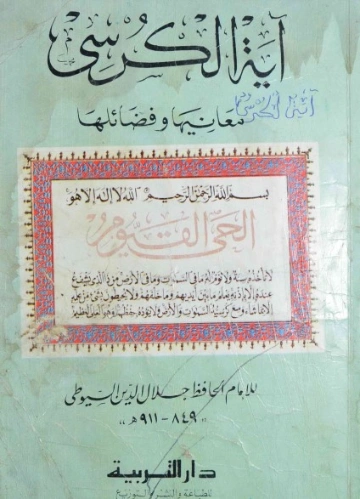 آية الكرسى
معانيها وفضائلها
آية الكرسى
بسم الله الرحمن الرحيم الله لا إله إلا هو
الحى القيوم
لا تأخذه سنة ولا نوم له ما فى السموات وما فى الأرض من ذا الذى يشفع
عنده إلا بإذنه يعلم ما بين أيديهم وما خلفهم ولا يحيطون بشىء من علمه
إلا بما شاء وسع كرسيه السموات والأرض ولا يؤده حفظهما وهو العلى العظيم
للإمام الحافظ جلال الدين السيوطى
"٨٤٩ - ٩١١ هـ"
دار التربية
للطباعة والنشر والتوزيع